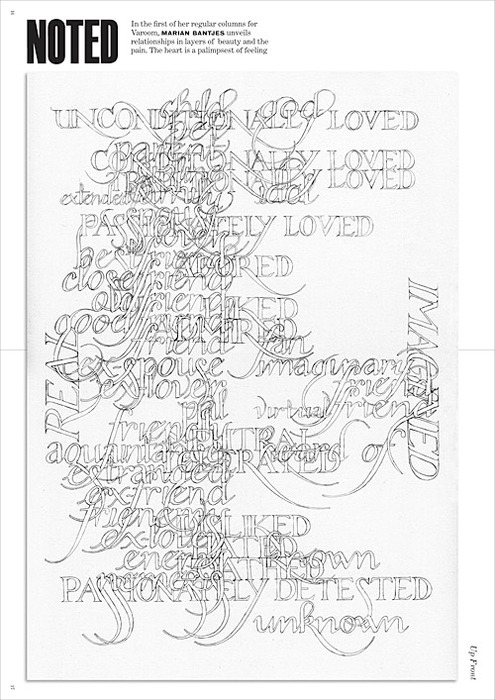 NOTED
In the first of her regular columns for
Varoom, MARIAN BANTJES unveils
relationships in layers of beauty and the
pain. The heart is a palimpsest of feeling
child god
UNCONDITIONALLY LOVED
parent
CONDITIONALLY LOVED
LOVED
extended family idol
PASSIONATELY LOVED
lover
best friend ADORED
close friend
old friend LIKED
good friend ADMIRED
friend fan
REAL
IMAGINED
ex-spouse imaginary
ex-lover friend
pal virtual friend
friendly NEUTRAL
acquaintance heard of
estranged TOLERATED
ex-friend
frienemy DISLIKED
ex-lover HATED
enemy known
LOATHED
PASSIONATELY DETESTED
unknown
Up Front